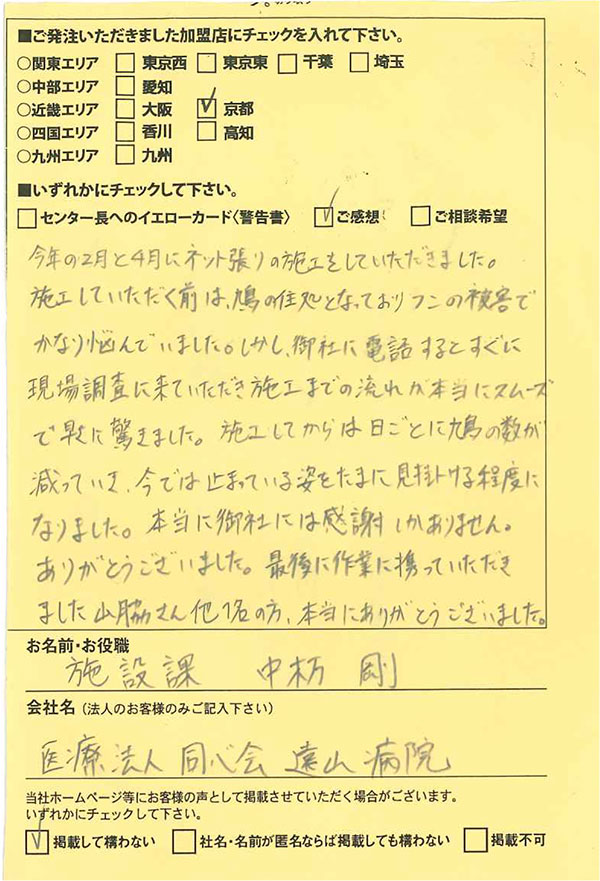 ■ご発注いただきました加盟店にチェックを入れて下さい。
○関東エリア □東京西 □東京東 □千葉 □埼玉
○中部エリア □愛知
○近畿エリア □大阪 ☑京都
○四国エリア □香川 □高知
○九州エリア □九州
■いずれかにチェックして下さい。
□センター長へのイエローカード〈警告書〉 ☑ご感想 □ご相談希望
今年の2月と4月にネット張りの施工をしていただきました。
施工していただく前は、鳩の住処となっておりフンの被害で
かなり悩んでいました。しかし、御社に電話するとすぐに
現場調査に来ていただき施工までの流れが本当にスムーズ
で早くに驚きました。施工してからは日ごとに鳩の数が
減っていき、今では止まっている姿をたまに見掛ける程度に
なりました。本当に御社には感謝しかありません。
ありがとうございました。最後に作業に携っていただき
ました山脇さん他1名の方、本当にありがとうございました。
お名前・お役職
施設課 中 剛
会社名(法人のお客様のみご記入下さい)
医療法人 同心会 遠山病院
当社ホームページ等にお客様の声として掲載させていただく場合がございます。
いずれかにチェックして下さい。
☑掲載して構わない □社名・名前が匿名ならば掲載しても構わない □掲載不可